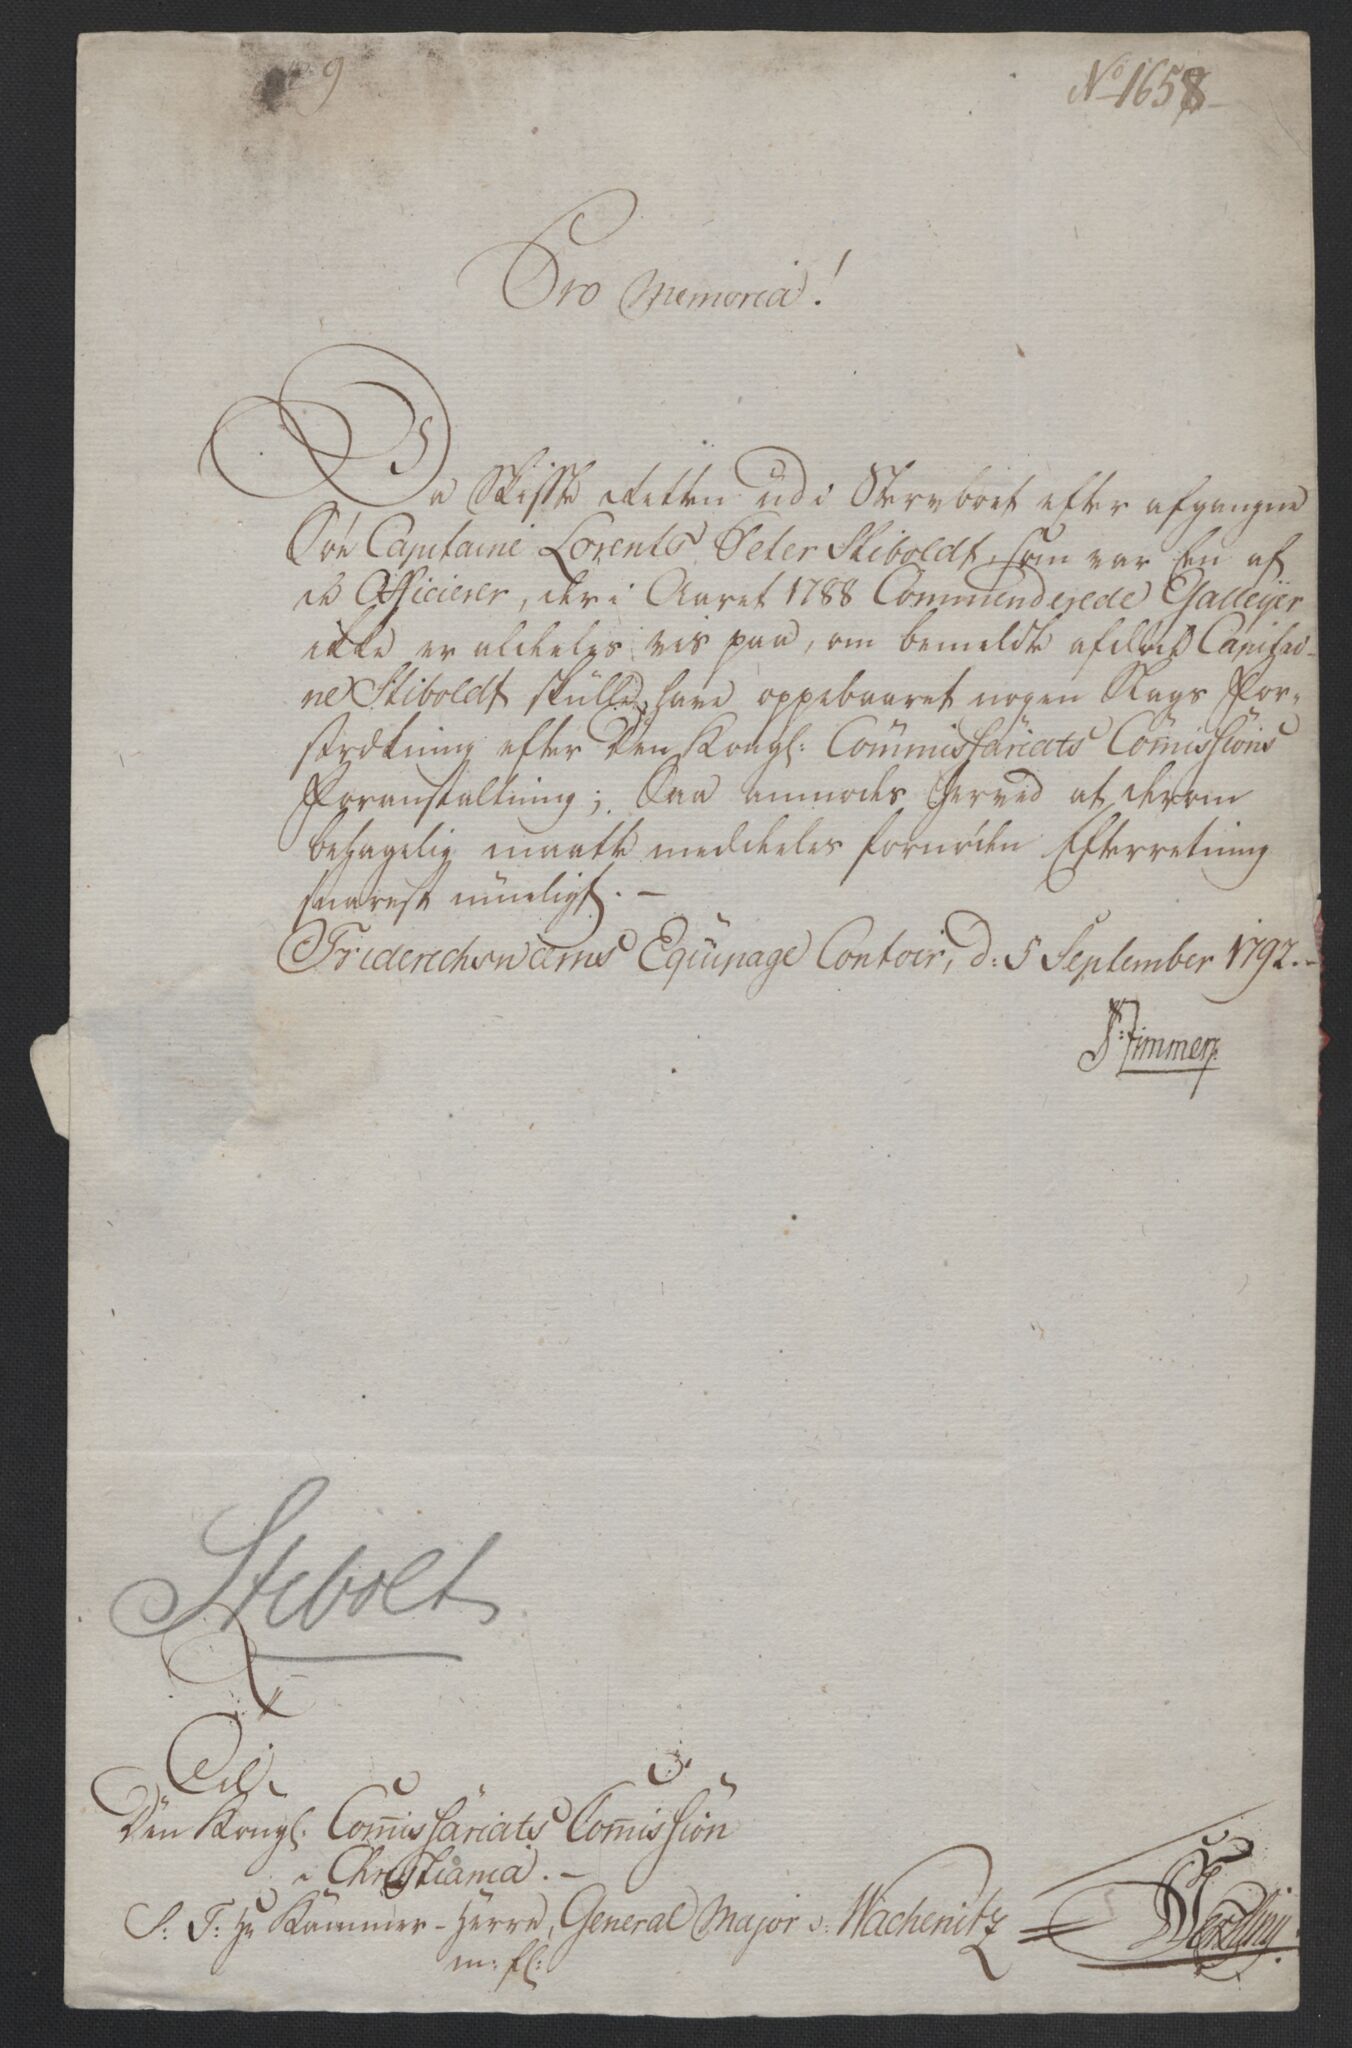 9
No 1658
Pro Memoria!
Da Skifte Retten udi Stervboet efter afgangne
Søe Capitaine Lorents Peter Stiboldt, som var Een af
de Officierer, der i Aaret 1788 Commenderede Galleyer
ikke er aldeeles vis paa, om bemeldte afdøde Capitai-
ne Stiboldt skulle have oppebaaret nogen Slags For-
strækning efter Den Kongl: Commissariats Commissions
Foranstaltning; Saa anmodes herved at derom
behagelig maatte meddeeles fornøden Efterretning
snarest mueligt. -
Friderichswærns Equipage Contoir, d: 5 September 1792. -
P: Zimmer
Stibolt
Til
Den Kongl. Commissariats Commission
i Christiania. -
S: T: Hr Kammer-Herre, General Major v: Wachenitz
m: fl: